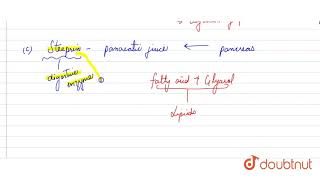 (c) Steapsin - pancreatic juice ← pancreas
digestive enzyme
fatty acid + Glycerol
Lipids
doubtnut